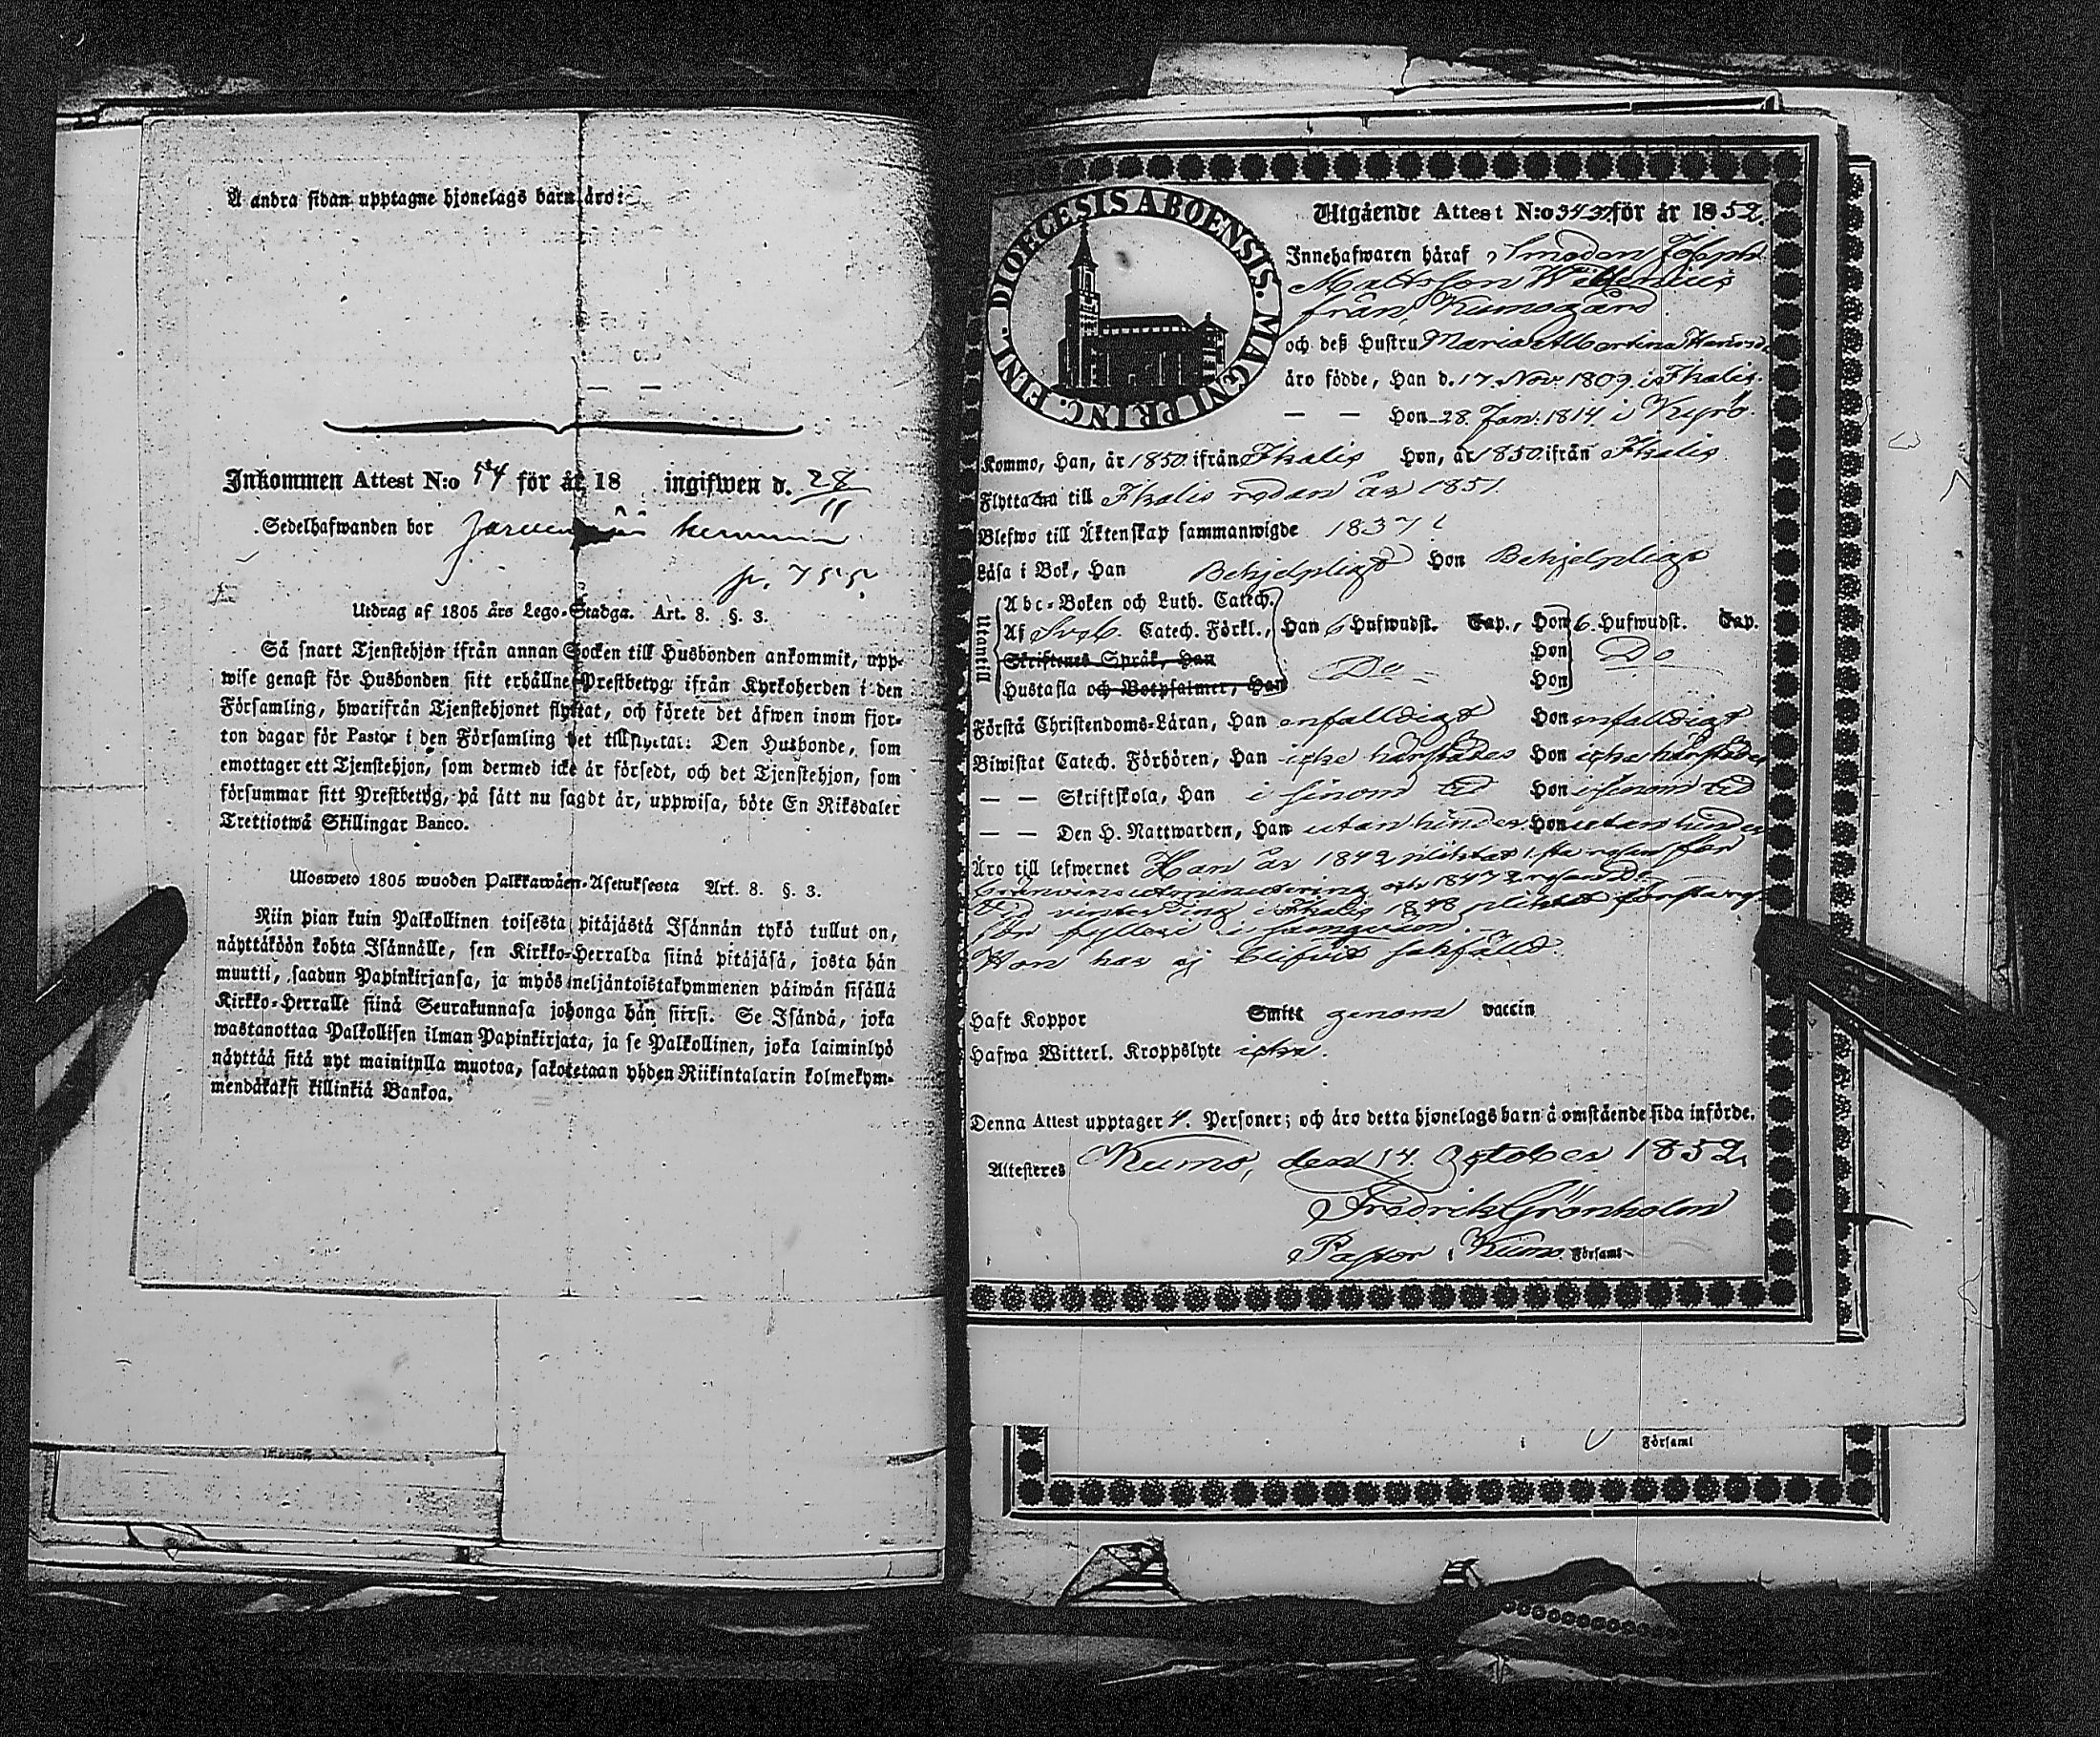 Å andra sidan upptagne hjonelags barn äro:
Inkommen Attest N:o 54 för år 18 ingifwen d. 28/11
Sedelhafwanden bor
Utdrag af 1805 års Lego-Stadga. Art. 8. §. 3.
Så snart Tjenstehjon ifrån annan Socken till Husbonden ankommit, upp-
wise genast för Husbonden sitt erhållne Prestbetyg ifrån Kyrkoherden i den
Församling, hwarifrån Tjenstehjonet flyttat, och förete det äfwen inom fjor-
ton dagar för Pastor i den Församling det tillflyttat: Den Husbonde, som
emottager ett Tjenstehjon, som dermed icke är försedt, och det Tjenstehjon, som
försummar sitt Prestbetyg, på sätt nu sagdt är, uppwisa, böte En Riksdaler
Trettiotwå Skillingar Banco.
Ulosweto 1805 wuoden Palkkawäen-Asetuksesta Art. 8. §. 3.
Niin pian kuin Palkollinen toisesta pitäjästä Isännän tykö tullut on,
näyttäköön kohta Isännälle, sen Kirkko-Herralda siinä pitäjäsä, josta hän
muutti, saadun Papinkirjansa, ja myös neljäntoistakymmenen päiwän sisällä
Kirkko-Herralle siinä Seurakunnasa johonga hän siirsi. Se Isändä, joka
wastanottaa Palkollisen ilman Papinkirjata, ja se Palkollinen, joka laiminlyö
näyttää sitä nyt mainitulla muotoa, sakotetaan yhden Riikintalarin kolmekym-
mendäkaksi killinkiä Bankoa.
DIOECESIS ABOENSIS. MAGNI PRINC. FINL.
Utgående Attest N:o 343 för år 1852.
Innehafwaren häraf, Smeden Joseph
Mattsson
från Kumogård
och deß Hustru Maria Albertina
äro födde, Han d. 17 Nov. 1809. i Ikalis.
— — Hon 28. Jan. 1814. i Kyro.
Kommo, Han, år 1850 ifrån Ikalis Hon, år 1850 ifrån Ikalis.
Flytta till Ikalis redan år 1851.
Blefwo till Äktenskap sammanwigde 1837
Läsa i Bok, Han Behjelpligt Hon Behjelpligt
Utantill
Abc-Boken och Luth. Catech.
Af Sveb. Catech. Förkl., Han 6 Hufwudst. Cap., Hon 6. Hufwudst. Cap.
Skriftenes Språk, Han Do Hon Do
Hustafla och Botpsalmer, Han Hon
Förstå Christendoms-Läran, Han enfalldigt Hon enfalldigt
Biwistat Catech. Förhören, Han icke härstädes Hon icke härstädes
— — Skriftskola, Han i sinom tid Hon i sinom tid
— — Den H. Nattwarden, Han utan hinder Hon utan hinder
Äro till lefwernet Han år 1842 pliktat 1sta resan för
Bränvins utminutering och 1847 2 resan Do
Vid vinterting i Ikalis 1848 pliktat första
för fylleri i
Hon har ej blifvit sakfälld.
Haft Koppor Smitt genom vaccin
Hafwa Witterl. Kroppslyte icke.
Denna Attest upptager 4. Personer; och äro detta hjonelags barn å omstående sida införde.
Attesteres Kumo, den 14. October 1852.
Fredrik Grönholm
Pastor i Kumo Församl
i Församl